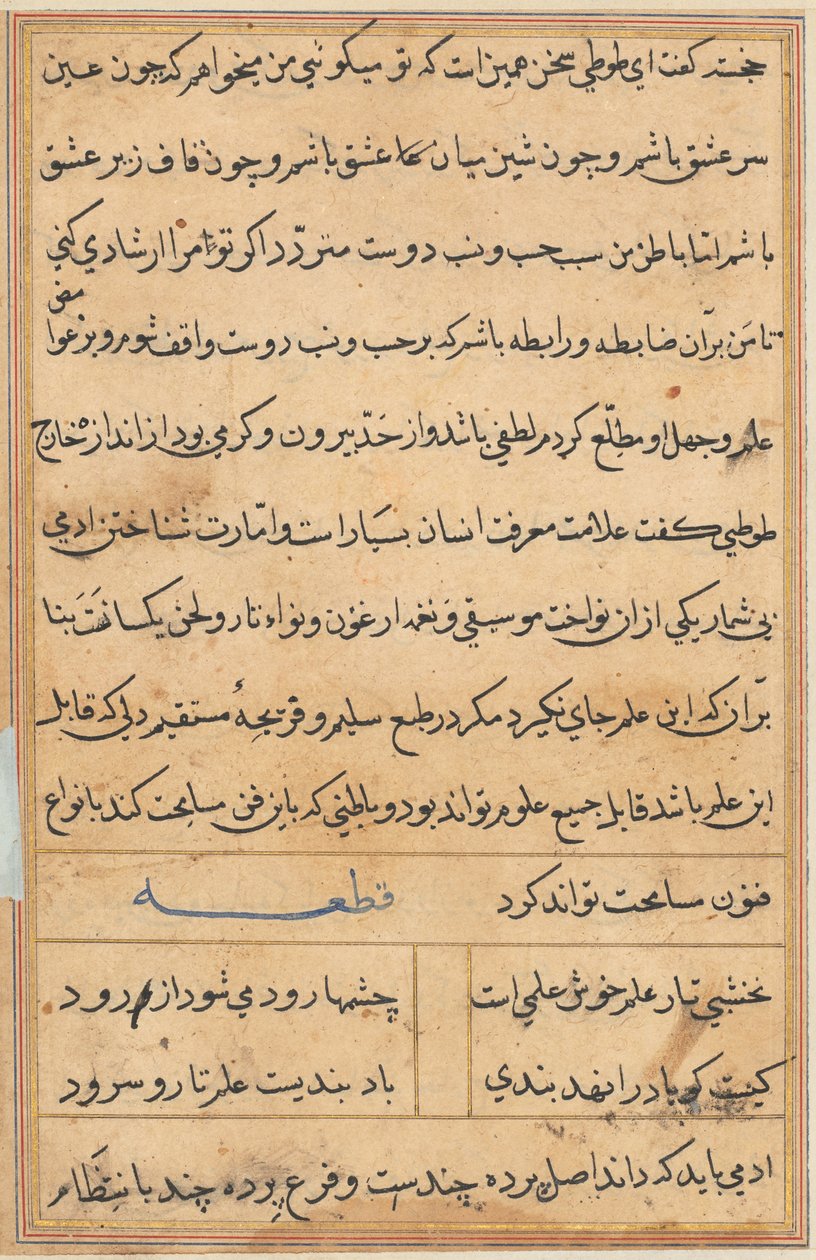 خجسته کفت ای طوطي سخن همین است که تو میکوئي من میخواهم که چون عین
سر عشق باشم و چون شین میان عشق باشم و چون قاف زیر عشق
باشم امّا باطن من سبب حسب و نسب دوست متردّد اکر تو مرا ارشادي کني
تا من بر آن ضابطه و رابطه باشم که بر حسب و نسب دوست واقف شوم و بر غوامض
علم و جهل او مطلّع کردم لطفي باشد و از حَدّ بیرون و کرمي بود از اندازه خارج
طوطي کفت علامت معرفت انسان بسَیار است و امّارت شناختن ادمي
بي شمار یکي از ان نواخت موسیقي وَ نغمه ارغنون و نواء تار و لحن یکسانَتَ بنا
برّ ان که این علم جاي نکیرد مکر در طبع سلیم و قریحهٔ مستقیم دلي که قابل
این علم باشد قابل جمیع علوم تواند بود و باطني که باین فن مسامحت کند بانواع
فنون مسامحت تواند کرد قطعه
نخشبي تار علم خوش علمي است چشمها رود مي شود از رود
کیست کو باد را نهد بندي باد بندیست علم تار و سرود
ادمي باید که داند اصل پرده چندست و فرع پرده چند با نتظَام